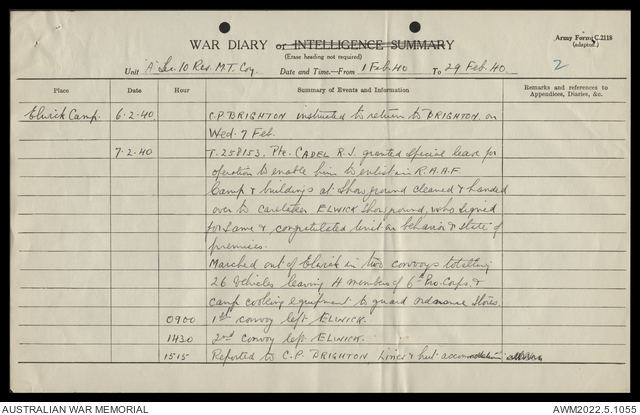 WAR DIARY or INTELLIGENCE SUMMARY
(Erase heading not required)
Army Form C.2118
(adapted.)
2
Unit "A" Sec. 10 Res. M.T. Coy. Date and Time.—From 1 Feb. 40 To 29 Feb. 40
Place Date Hour Summary of Events and Information Remarks and references to Appendices, Diaries, &c.
Elwick Camp. 6.2.40. C.P. BRIGHTON instructed to return to BRIGHTON on
Wed. 7 Feb.
7.2.40 T.258153. Pte. CADEL R.J. granted special leave for
operation to enable him to enlist in R.A.A.F
Camp & buildings at Show ground cleaned & handed
over to caretaker ELWICK Show ground, who signed
for same & congratulated unit on behavior & state of
premises.
Marched out of Elwick in two convoys totalling
26 vehicles leaving 4 members of 6th Pro. Corps. &
camp cooking equipment to guard ordnance stores.
0900 1st convoy left ELWICK.
1430 2nd convoy left ELWICK.
1515 Reported to C.P. BRIGHTON Lines & hut accommodation
AUSTRALIAN WAR MEMORIAL AWM2022.5.1055